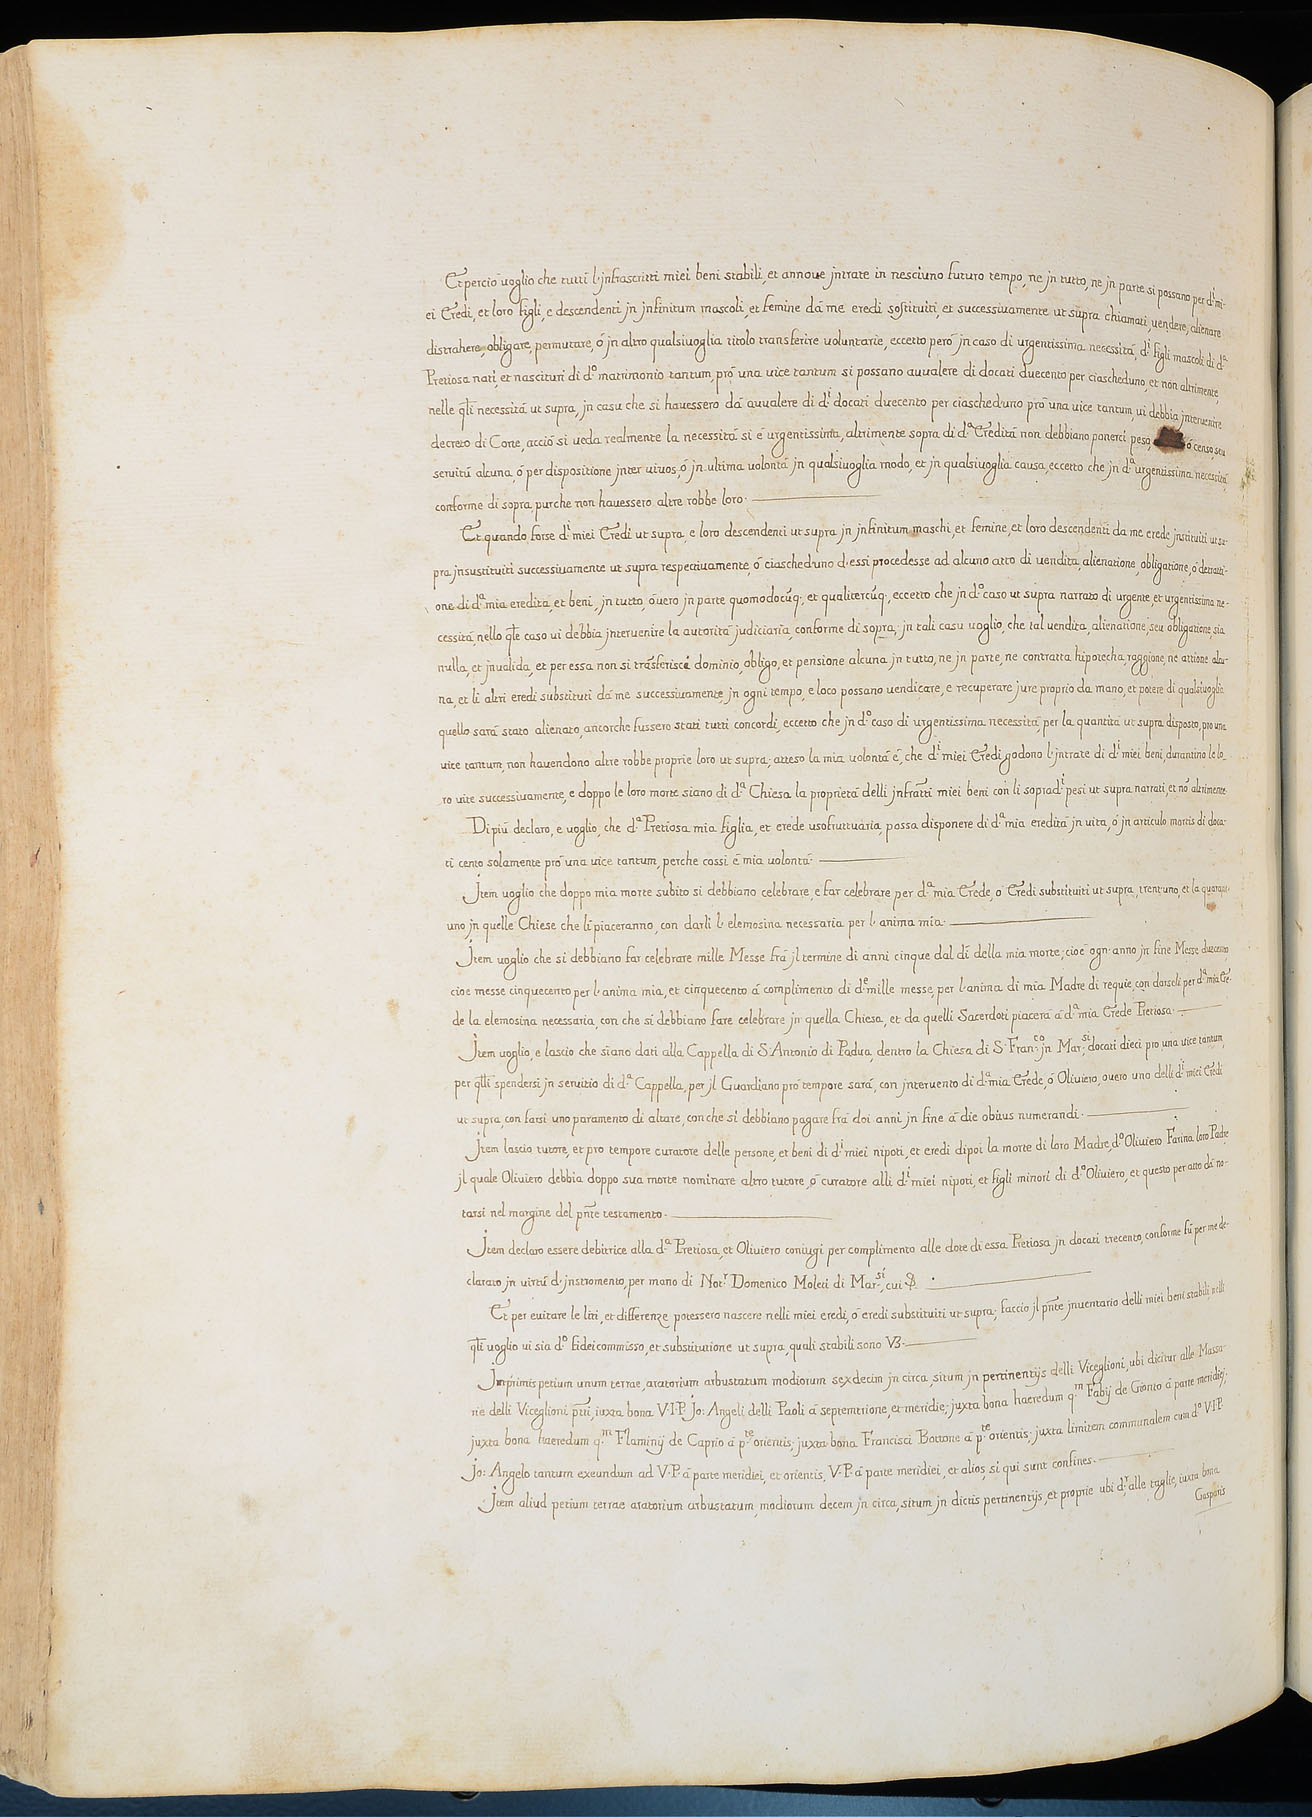 Et perciò uoglio che tutti l'jnfrascritti miei beni stabili, et annoue jntrate in nesciuno futuro tempo, ne jn tutto, ne jn parte si possano per dⁱ mi-
ei Eredi, et loro figli, e descendenti jn jnfinitum mascoli, et femine dà me eredi sostituiti, et successiuamente ut supra chiamati, uendere, alienare
distrahere, obligare, permutare, ò jn altro qualsiuoglia titolo transferire voluntarie, eccetto però jn caso di urgentissima necessità, dⁱ figli mascoli di dª
Pretiosa nati, et nascituri di dº matrimonio tantum, prò una uice tantum si possano auualere di docati duecento per ciascheduno, et non altrimente,
nelle qłi necessità ut supra, jn casu che si hauessero dà auualere di dⁱ docati duecento per ciascheduno prò una uice tantum, ui debbia jnteruenire
decreto di Corte, acciò si ueda realmente la necessità si è urgentissima, altrimente sopra di dª Eredità non debbiano ponerci peso, ò censo seu
seruitù alcuna, ò per dispositione jnter uiuos, ò jn ultima uolontà jn qualsiuoglia modo, et jn qualsiuoglia causa, eccetto che jn dª urgentissima necessità,
conforme di sopra, purche non hauessero altre robbe loro.
Et quando forse dⁱ miei Eredi ut supra, e loro descendenti ut supra jn jnfinitum maschi, et femine, et loro descendenti da me erede jnstituiti ut su-
pra jnsustituiti successiuamente ut supra respectiuamente, ò ciascheduno d'essi procedesse ad alcuno atto di uendita, alienatione, obligatione, ò detratti-
one di dª mia eredità, et beni, jn tutto, òuero jn parte quomodocūq., et qualitercūq., eccetto che jn dº caso ut supra narrato di urgente, et urgentissima ne-
cessità, nello qłe caso ui debbia jnteruenire la autorità judiciaria, conforme di sopra; jn tali casu uoglio, che tal uendita, alienatione, seu obligatione, sia
nulla, et jnualida, et per essa non si trāsferisca dominio, obligo, et pensione alcuna jn tutto, ne jn parte, ne contratta hipotecha, raggione, ne attione alcu-
na, et li altri eredi substituti dà me successiuamente, jn ogni tempo, e loco possano uendicare, e recuperare jure proprio da mano, et potere di qualsiuoglia
quello sarà stato alienato, ancorche fussero stati tutti concordi, eccetto che jn dº caso di urgentissima necessità, per la quantità ut supra disposto, pro una
uice tantum, non hauendono altre robbe proprie loro ut supra; atteso la mia uolontà è, che dⁱ miei Eredi godono l'jntrate di dⁱ miei beni, durantino le lo-
ro uite successiuamente, e doppo le loro morte siano di dª Chiesa la proprietà delli jnfratti miei beni con li sopradⁱ pesi ut supra narrati, et nō altrimente.
Di più declaro, e uoglio, che dª Pretiosa mia figlia, et erede usofruttuaria, possa disponere di dª mia eredità jn uita, ò jn articulo mortis di doca-
ti cento solamente prò una uice tantum, perche cossi è mia uolontà.
Jtem uoglio che doppo mia morte subito si debbiano celebrare, e far celebrare per dª mia Erede, ò Eredi substituiti ut supra, trent'uno, et la quarant'
uno jn quelle Chiese che li piaceranno, con darli l'elemosina necessaria per l'anima mia.
Jtem uoglio che si debbiano far celebrare mille Messe frà jl termine di anni cinque dal dì della mia morte; cioè ogn'anno jn fine Messe duecento
cioe messe cinquecento per l'anima mia, et cinquecento à complimento di dᵉ mille messe, per l'anima di mia Madre di requie, con darseli per dª mia Ere-
de la elemosina necessaria, con che si debbiano fare celebrare jn quella Chiesa, et da quelli Sacerdoti piacerà à dª mia Erede Pretiosa.
Jtem uoglio, e lascio che siano dati alla Cappella di S. Antonio di Padua, dentro la Chiesa di S. Fran.ᶜᵒ jn Mar.ˢⁱ docati dieci pro una uice tantum,
per qłli spendersi jn seruitio di dª Cappella, per jl Guardiano prò tempore sarà, con jnteruento di dª mia Erede, ò Oliuiero, ouero uno delli dⁱ miei Eredi
ut supra, con farsi uno paramento di altare, con che si debbiano pagare frà doi anni jn fine à die obitus numerandi.
Jtem lascio tutore, et pro tempore curatore delle persone, et beni di dⁱ miei nipoti, et eredi dipoi la morte di loro Madre, dº Oliuiero Farina loro Padre
jl quale Oliuiero debbia doppo sua morte nominare altro tutore, ò curatore alli dⁱ miei nipoti, et figli minori di dº Oliuiero, et questo per atto dà no-
tarsi nel margine del pñte testamento.
Jtem declaro essere debitrice alla dª Pretiosa, et Oliuiero coniugi per complimento alle dote di essa Pretiosa jn docati trecento, conforme fù per me de-
clarato jn uirtù d'jnstromento, per mano di Not.ʳ Domenico Moleti di Mar.ˢⁱ, cui
Et per euitare le liti, et differenze potessero nascere nelli miei eredi, ò eredi substituiti ut supra; faccio jl pñte jnuentario delli miei beni stabili, nelli
qłi uoglio ui sia dº fideicommisso, et substitutione ut supra, quali stabili sono V3.
Jmprimis petium unum terrae, aratorium arbustatum modiorum sexdecim jn circa, situm jn pertinentijs delli Viceglioni, ubi dicitur alle Massa-
rie delli Viceglioni pñi, iuxta bona V.I.P. Jo: Angeli delli Paoli à septemtrione, et meridie; juxta bona haeredum q.ᵐ Fabij de Gionto à parte meridiej;
juxta bona haeredum q.ᵐ Flaminij de Caprio à p.ᵗᵉ orientis; juxta bona Francisci Bottone à p.ᵗᵉ orientis; juxta limitem communalem cum dº V.I.P.
Jo: Angelo tantum exeundum ad V.P. à parte meridiei, et orientis, V.P. à parte meridiei, et alios, si qui sunt confines.
Jtem aliud petium terrae aratorium arbustatum, modiorum decem jn circa, situm jn dictis pertinentijs, et proprie ubi d.ʳ alle taglie, iuxta bona
Gasparis